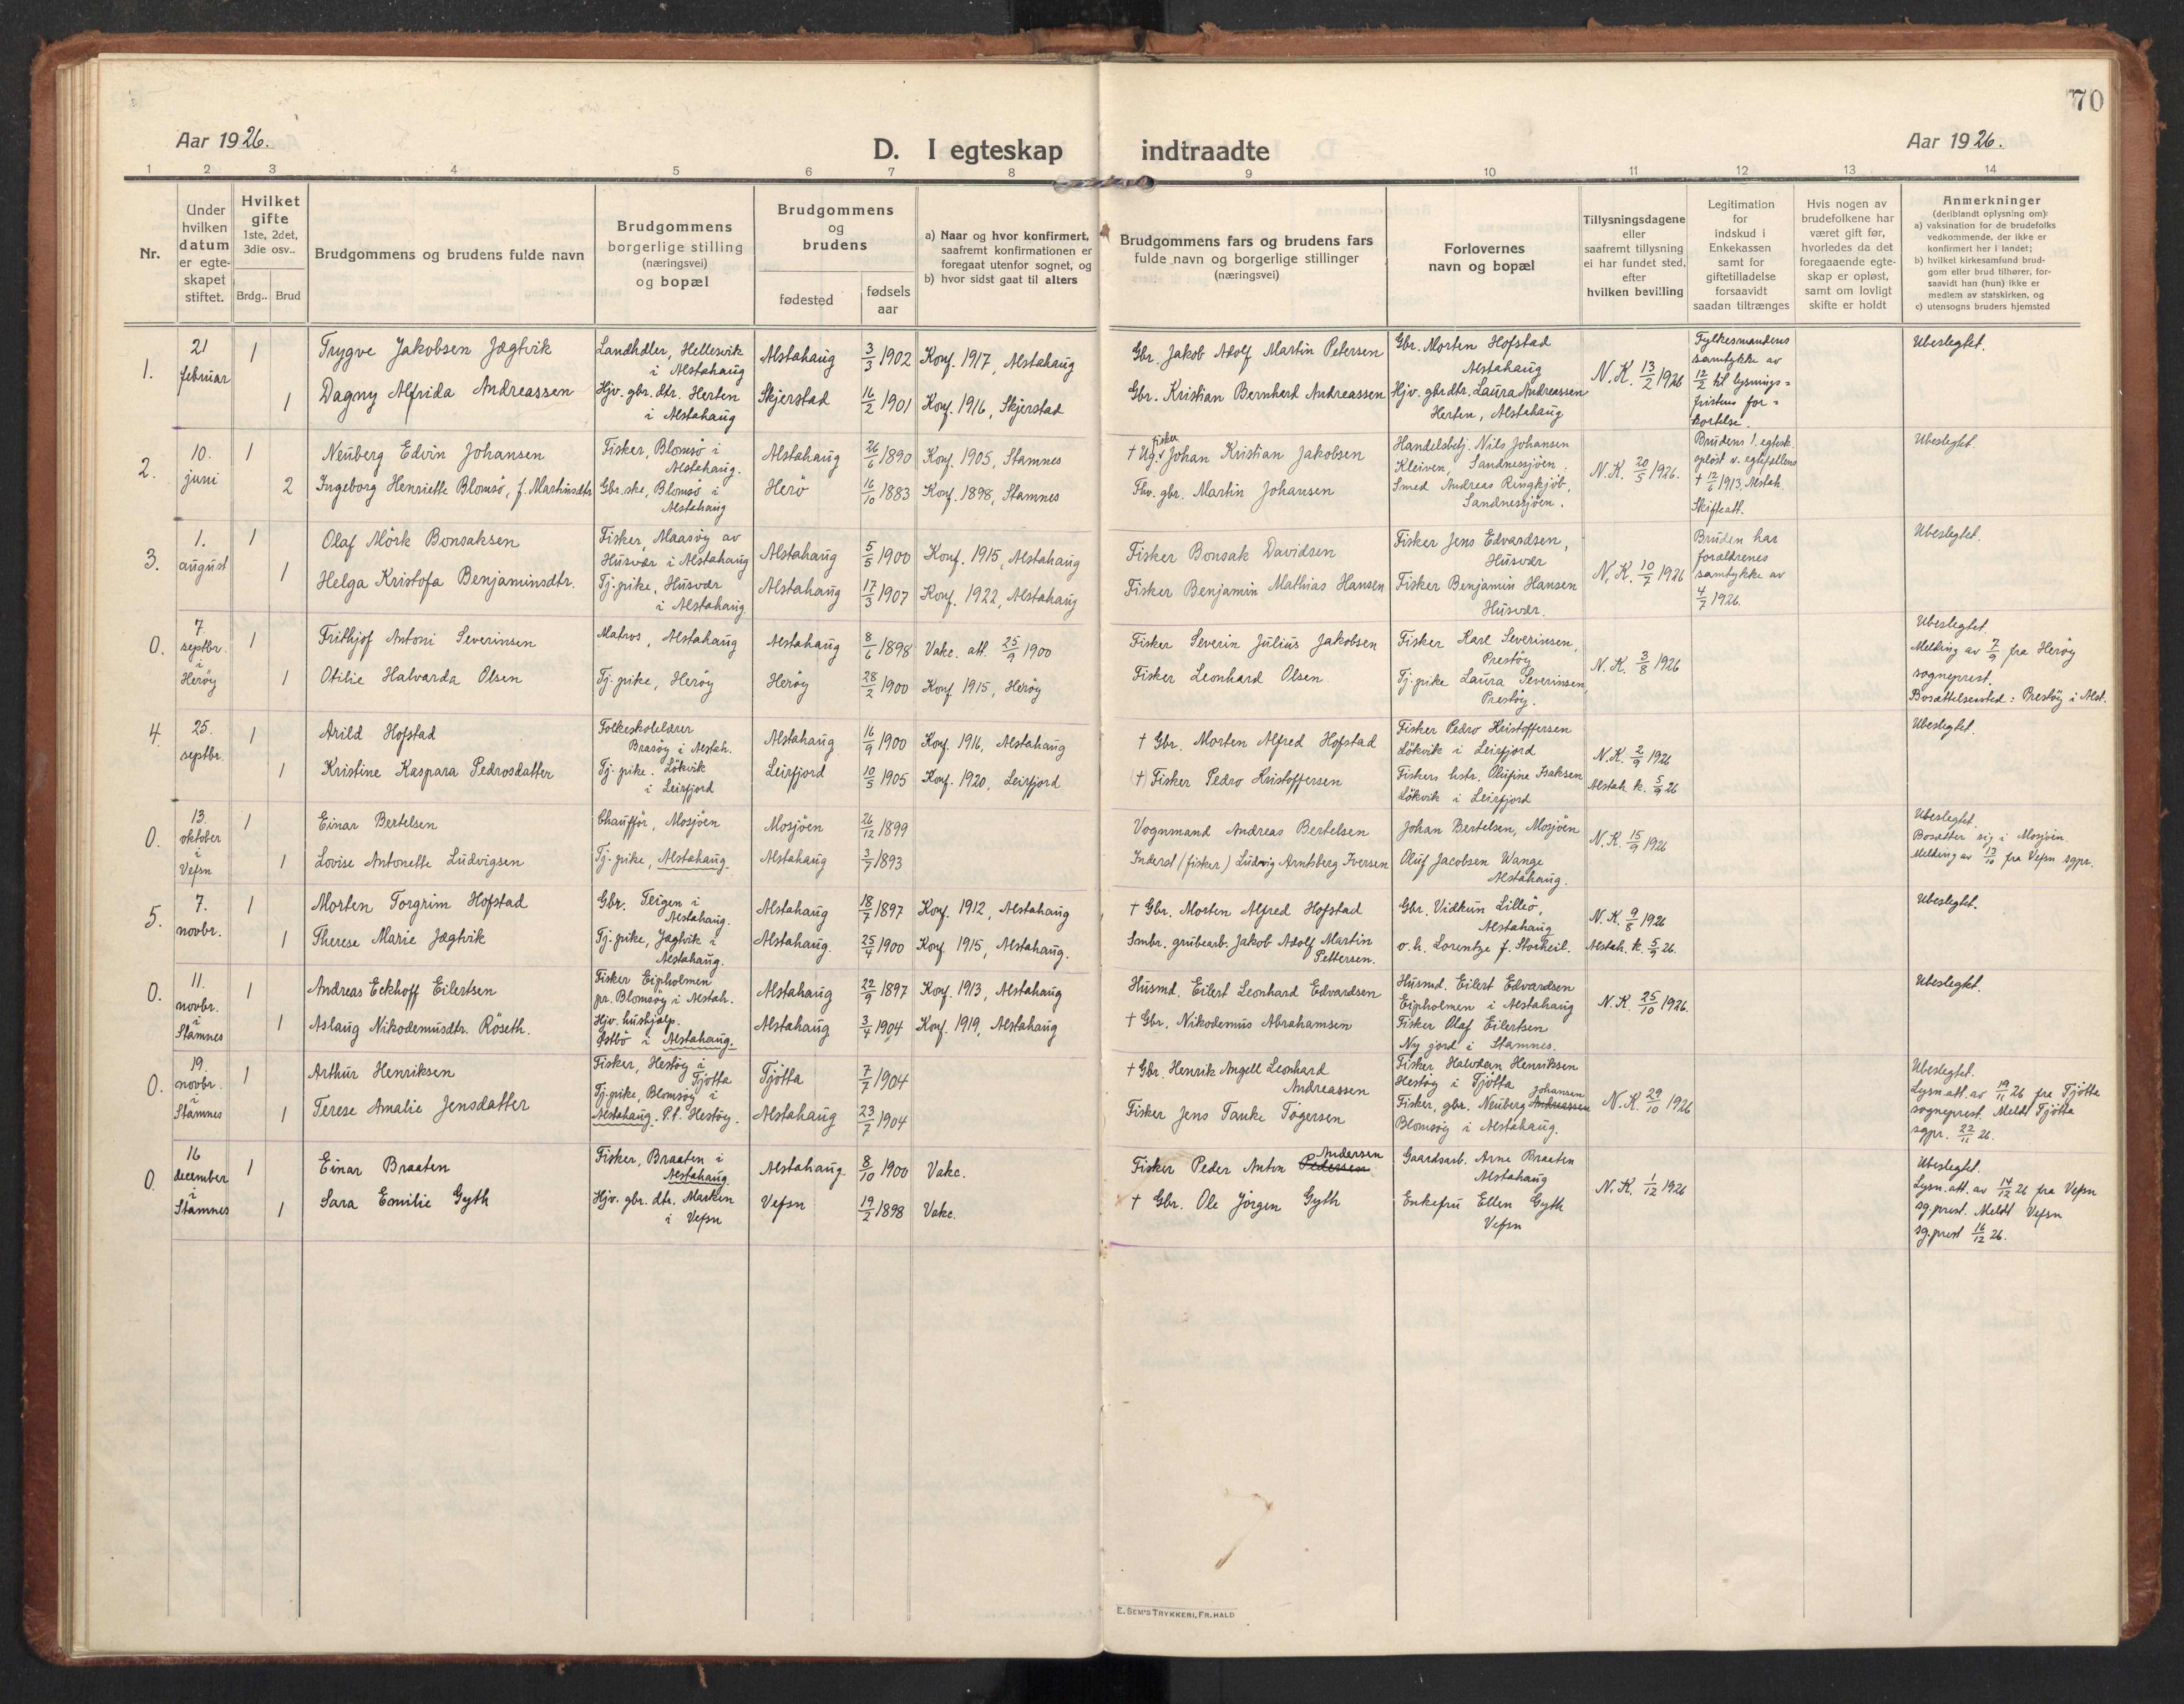 70
Aar 1926.
D. I egteskap indtraadte
Aar 1926.
1 2 3 4 5 6 7 8 9 10 11 12 13 14
Nr.
Under
hvilken
datum
er egte-
skapet
stiftet.
Hvilket
gifte
1ste, 2det,
3die osv..
Brdg.. Brud
Brudgommens og brudens fulde navn
Brudgommens
borgerlige stilling
(næringsvei)
og bopæl
Brudgommens
og
brudens
fødested
fødsels
aar
a) Naar og hvor konfirmert,
saafremt konfirmationen er
foregaat utenfor sognet, og
b) hvor sidst gaat til alters
Brudgommens fars og brudens fars
fulde navn og borgerlige stillinger
(næringsvei)
Forlovernes
navn og bopæl
Tillysningsdagene
eller
saafremt tillysning
ei har fundet sted,
efter
hvilken bevilling
Legitimation
for
indskud i
Enkekassen
samt for
giftetilladelse
forsaavidt
saadan tiltrænges
Hvis nogen av
brudefolkene har
været gift før,
hvorledes da det
foregaaende egte-
skap er opløst,
samt om lovligt
skifte er holdt
Anmerkninger
(deriblandt oplysning om):
a) vaksination for de brudefolks
vedkommende, der ikke er
konfirmert her i landet;
b) hvilket kirkesamfund brud-
gom eller brud tilhører, for-
saavidt han (hun) ikke er
medlem av statskirken, og
c) utensogns bruders hjemsted
1.
21
februar
1
Trygve Jakobsen Jægtvik
Landhdler, Hellesvik
i Alstahaug
Alstahaug
3/3 1902
Konf. 1917, Alstahaug
Gbr. Jakob Adolf Martin Petersen
Gbr. Morten Hofstad
Alstahaug
N.K. 13/2 1926
Fylkesmandens
samtykke av
12/2 til lysnings=
fristens for=
kortelse.
Ubeslegtet.
1
Dagny Alfrida Andreassen
Hjv. gbr. dtr. Herten
i Alstahaug
Skjerstad
16/2 1901
Konf. 1916, Skjerstad
Gbr. Kristian Bernhert Andreassen
Hjv. gbrdtr. Laura Andreassen
Herten, Alstahaug
2.
10.
juni
1
Neuberg Edvin Johansen
Fisker, Blomsö i
Alstahaug.
Alstahaug
26/6 1890
Konf. 1905, Stamnes
fisker
† Ug. Johan Kristian Jakobsen
Handelsbetj. Nils Johansen
Kleiven, Sandnessjöen.
N.K. 20/5 1926.
Brudens 1. egtesk.
opløst v. egtefællens
† 12/6 1913, Alstah.
Skifteatt.
Ubeslegtet
2
Ingeborg Henriette Blomsö, f. Martinsdtr
Gbr.ske, Blomsö i
Alstahaug
Herö
16/10 1883
Konf. 1898, Stamnes
Fhv. gbr. Martin Johansen
Smed Andreas Ringkjöb,
Sandnessjöen.
3.
1.
august
1
Olaf Mörk Bonsaksen
Fisker, Maasöy av
Husvær i Alstahaug
Alstahaug
5/5 1900
Konf. 1915, Alstahaug
Fisker Bonsak Davidsen
Fisker Jens Edvardsen,
Husvær
N.K. 10/7 1926
Bruden har
forældrenes
samtykke av
4/7 1926.
Ubeslegtet.
1
Helga Kristofa Benjaminsdtr.
Tj.pike, Husvær
i Alstahaug.
Alstahaug
17/3 1907
Konf. 1922, Alstahaug
Fisker Benjamin Mathias Hansen
Fisker Benjamin Hansen
Husvær.
0.
7.
septbr.
i
Heröy
1
Frithjof Antoni Severinsen
Matros, Alstahaug
Alstahaug
8/6 1898
Vakc. att. 25/9 1900
Fisker Severin Julius Jakobsen
Fisker Karl Severinsen,
Prestöy
N.K. 3/8 1926
Ubeslegtet.
Melding av 7/9 fra Heröy
sogneprest.
Bosættelsessted: Prestöy i Alst.
1
Otilie Halvarda Olsen
Tj. pike, Heröy
Heröy
28/2 1900
Konf 1915, Heröy
Fisker Leonhard Olsen
Tj.pike Laura Severinsen,
Prestöy.
4.
25.
septbr.
1
Arild Hofstad
Folkeskolelærer
Brasöy i Alstah.
Alstahaug
16/9 1900
Konf. 1916, Alstahaug
† Gbr. Morten Alfred Hofstad
Fisker Pedro Kristoffersen
Lökvik i Leirfjord
N.K. 2/9 1926
Alstah. k. 5/9 26
Ubeslegtet.
1
Kristine Kaspara Pedrosdatter
Tj. pike. Lökvik
i Leirfjord
Leirfjord
10/5 1905
Konf. 1920, Leirfjord
(†) Fisker Pedro Kristoffersen
Fiskers hstr. Olufine Isaksen
Lökvik i Leirfjord
0.
13.
oktober
i
Vefsn
1
Einar Bertelsen
Chaufför, Mosjöen
Mosjöen
26/12 1899
Vognmand Andreas Bertelsen
Johan Bertelsen, Mosjöen
N.K. 15/9 1926
Ubeslegtet.
Bosætter sig i Mosjöen.
Melding av 13/10 fra Vefsn sgpr.
1
Lovise Antonette Ludvigsen
Tj. pike, Alstahaug.
Alstahaug
3/7 1893
Inderst (fisker) Ludvig Arntsberg Iversen
Oluf Jacobsen Wange
Alstahaug.
5.
7.
novbr.
1
Morten Torgrim Hofstad
Gbr. Teigen i
Alstahaug.
Alstahaug
18/7 1897
Konf. 1912, Alstahaug
† Gbr. Morten Alfred Hofstad
Gbr. Vidkun Lilleö,
Alstahaug
N.K. 9/8 1926
Alstah. k. 5/9 26.
Ubeslegtet.
1
Therese Marie Jægtvik
Tj. pike, Jægtvik i
Alstahaug.
Alstahaug.
25/4 1900
Konf. 1915, Alstahaug.
Smbr. grubearb. Jakob Adolf Martin
Pettersen.
o.h. Lorentze f. Storheil.
0.
11.
novbr.
i
Stamnes
1
Andreas Eckhoff Eilertsen
Fisker Eipholmen
pr. Blomsöy i Alstah.
Alstahaug
22/9 1897
Konf. 1913, Alstahaug
Husmd. Eilert Leonhard Edvardsen
Husmd. Eilert Edvardsen
Eipholmen i Alstahaug
N.K. 25/10 1926.
Ubeslegtet.
1
Aslaug Nikodemusdtr. Röseth.
Hjv. hushjælp.
Østbö i Alstahaug.
Alstahaug
3/4 1904
Konf. 1919, Alstahaug
† Gbr. Nikodemus Abrahamsen
Fisker Olaf Eilertsen
Ny jord i Stamnes.
0.
19.
novbr.
i
Stamnes
1
Arthur Henriksen
Fisker, Hestöy i
Tjötta
Tjötta
7/7 1904
† Gbr. Henrik Angell Leonhard
Andreassen
Fisker Halvdan Henriksen
Hestöy i Tjötta
N.K. 29/10 1926
Ubeslegtet.
Lysn.att. av 19/11 26 fra Tjötta
sogneprest. Meldt Tjötta
sgpr. 22/11 26.
1
Terese Amalie Jensdatter
Tj.pike, Blomsöy i
Alstahaug. P.t. Hestöy.
Alstahaug
23/7 1904
Fisker Jens Tanke Tögersen
Johansen
Fisker, gbr. Neuberg Andreassen
Blomsöy i Alstahaug.
0.
16
december
i
Stamnes
1
Einar Braaten
Fisker, Braaten i
Alstahaug
Alstahaug.
8/10 1900
Vakc.
Andersen
Fisker Peder Anton Pedersen
Gaardsarb. Arne Braaten
Alstahaug
N.K. 1/12 1926
Ubeslegtet.
Lysn.att. av 14/12 26 fra Vefsn
sg.prest. Meldt Vefsn
sg.prest 16/12 26.
1
Sara Emilie Gyth
Hjv. gbr. dtr. Marken
i Vefsn
Vefsn
19/2 1898
Vakc.
† Gbr. Ole Jörgen Gyth
Enkefru Ellen Gyth
Vefsn
E. SEM'S TRYKKERI, FR.HALD